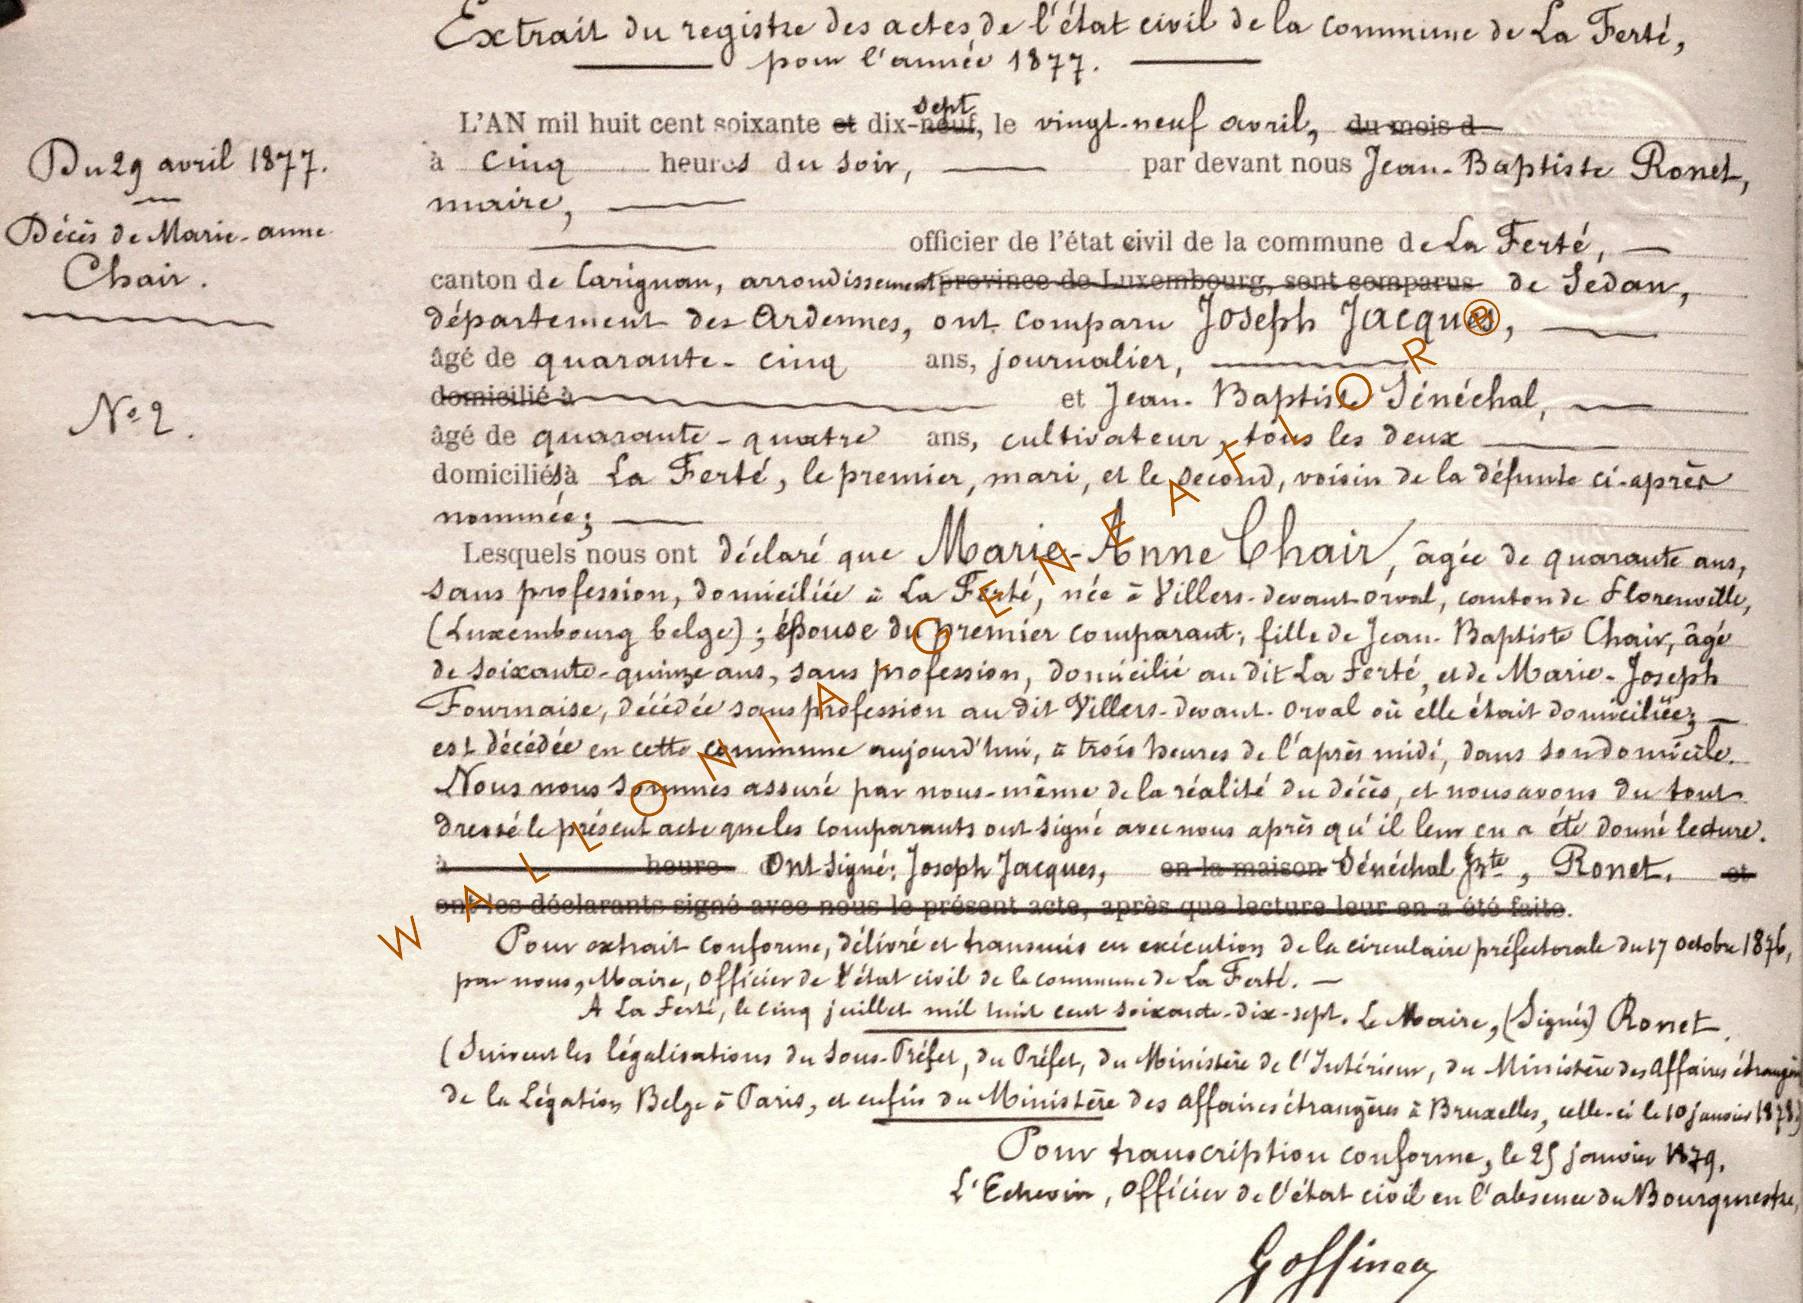 Extrait du registre des actes de l'état civil de la commune de La Ferté,
pour l'année 1877.
Du 29 avril 1877.
Décès de Marie-anne
Chair.
No 2.
L'AN mil huit cent soixante et dix-neuf sept, le vingt-neuf avril, du mois d
à cinq heures du soir, par devant nous Jean-Baptiste Ronet,
maire,
officier de l'état civil de la commune de La Ferté,
canton de Carignan, arrondissement province de Luxembourg, sont comparus de Sedan,
département des Ardennes, ont comparu Joseph Jacques,
âgé de quarante-cinq ans, journalier,
domicilié à et Jean-Baptiste Sénéchal,
âgé de quarante-quatre ans, cultivateur, tous les deux
domiciliés à La Ferté, le premier, mari, et le second, voisin de la défunte ci-après
nommée;
Lesquels nous ont déclaré que Marie-Anne Chair, âgée de quarante ans,
sans profession, domiciliée à La Ferté, née à Villers-devant-Orval, canton de Florenville,
(Luxembourg belge); épouse du premier comparant; fille de Jean-Baptiste Chair, âgé
de soixante-quinze ans, sans profession, domicilié au dit La Ferté, et de Marie-Joseph
Fournaise, décédée sans profession au dit Villers-devant-Orval où elle était domiciliée;
est décédée en cette commune aujourd'hui, à trois heures de l'après midi, dans son domicile.
Nous nous sommes assuré par nous-même de la réalité du décès, et nous avons du tout
dressé le présent acte que les comparants ont signé avec nous après qu'il leur en a été donné lecture.
à heure Ont signé: Joseph Jacques, en la maison Sénéchal Jn Bte, Ronet. et
ont les déclarants signé avec nous le présent acte, après que lecture leur en a été faite.
Pour extrait conforme, délivré et transmis en exécution de la circulaire préfectorale du 17 octobre 1876,
par nous, Maire, officier de l'état civil de la commune de La Ferté.
A La Ferté, le cinq juillet mil huit cent soixante-dix-sept. Le Maire, (Signé) Ronet.
(Suivent les légalisations du Sous-Préfet, du Préfet, du Ministère de l'Intérieur, du Ministère des Affaires étrangères
de la Légation Belge à Paris, et enfin du Ministère des affaires étrangères à Bruxelles, celle-ci le 10 janvier 1878)
Pour transcription conforme, le 25 janvier 1879.
L'Echevin, officier de l'état civil en l'absence du Bourgmestre,
Goffinea
WALLONIA - GENEAFLOR®